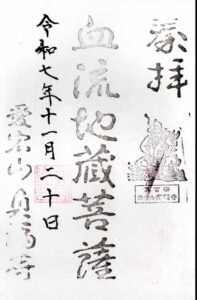 奉拝
血流地蔵菩薩
令和七年十一月二十日
愛宕山真福寺